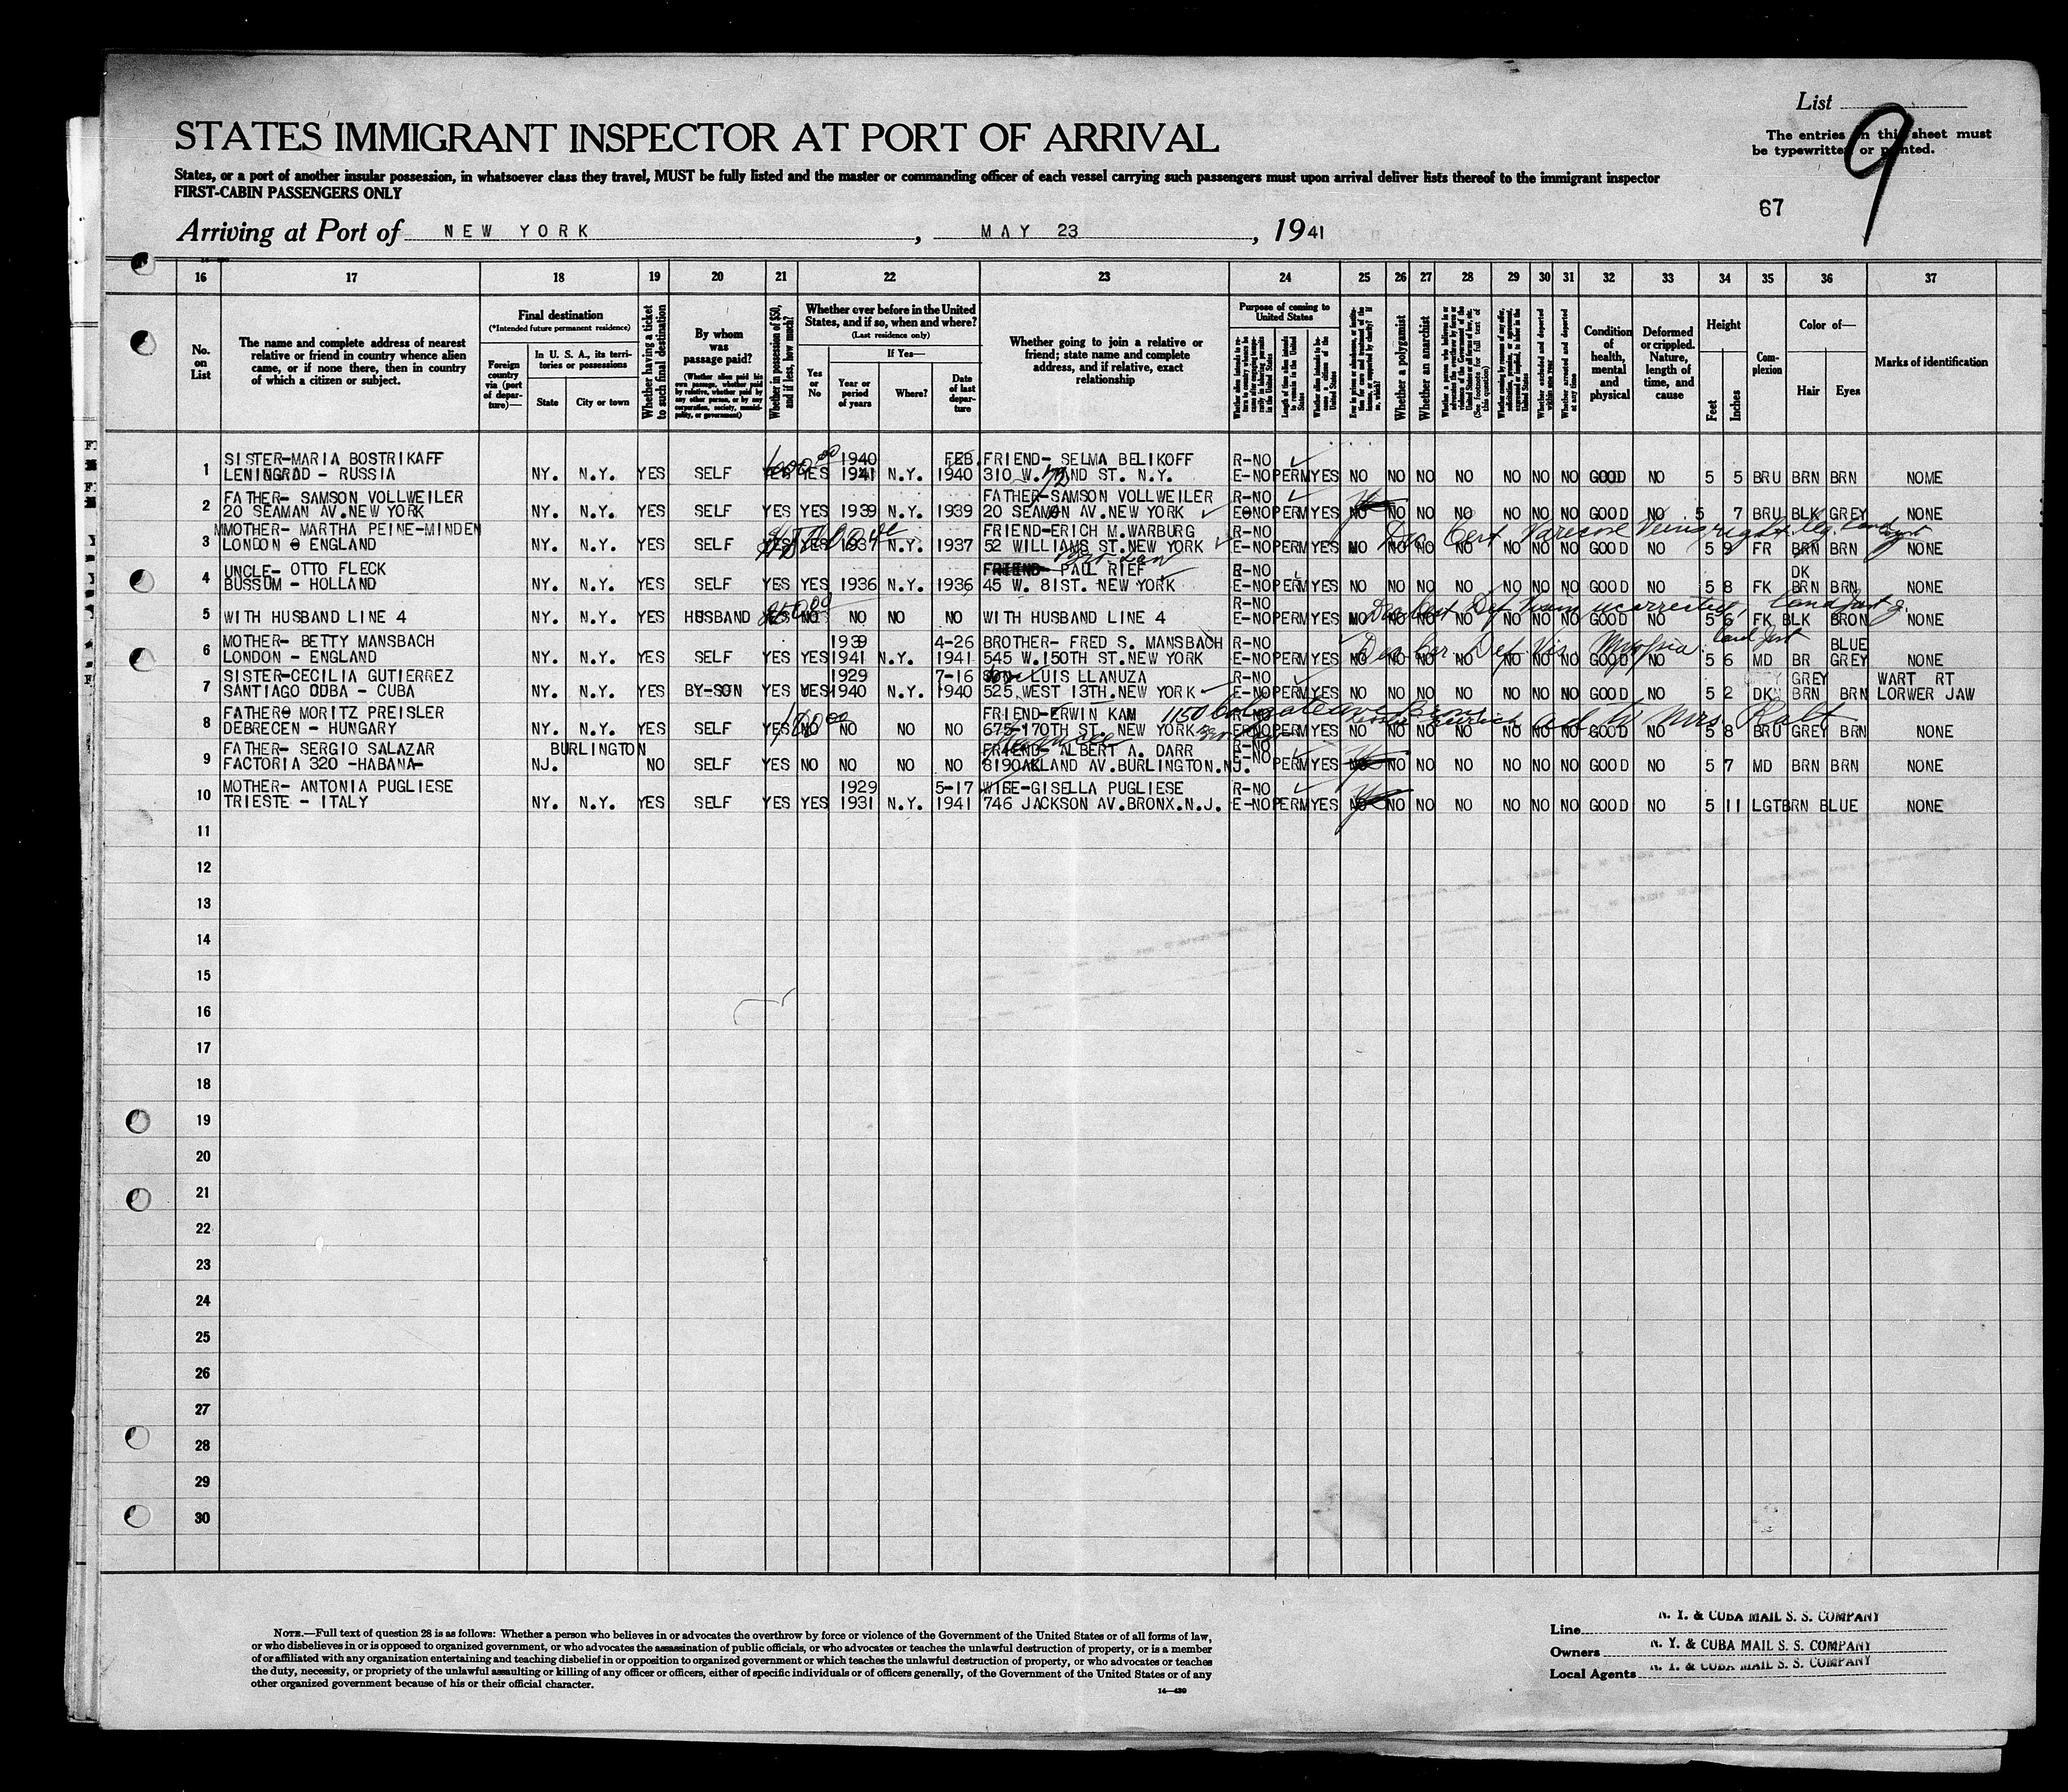 List
9
STATES IMMIGRANT INSPECTOR AT PORT OF ARRIVAL
The entries on this sheet must
be typewritten or printed.
States, or a port of another insular possession, in whatsoever class they travel, MUST be fully listed and the master or commanding officer of each vessel carrying such passengers must upon arrival deliver lists thereof to the immigrant inspector
FIRST-CABIN PASSENGERS ONLY
67
Arriving at Port of NEW YORK , MAY 23 , 1941
16 17 18 19 20 21 22 23 24 25 26 27 28 29 30 31 32 33 34 35 36 37
No. on List
The name and complete address of nearest
relative or friend in country whence alien
came, or if none there, then in country
of which a citizen or subject.
Final destination
(*Intended future permanent residence)
Foreign country via (port of departure)—
In U. S. A., its territories or possessions
State City or town
Whether having a ticket to such final destination
By whom was passage paid?
(Whether alien paid his own passage, whether paid by relative, whether paid by any other person, or by any corporation, society, municipality, or government)
Whether in possession of $50, and if less, how much?
Whether ever before in the United
States, and if so, when and where?
(Last residence only)
Yes or No
If Yes—
Year or period of years
Where?
Date of last departure
Whether going to join a relative or
friend; state name and complete
address, and if relative, exact
relationship
Purpose of coming to United States
Length of time alien intends to remain in the United States
Whether a polygamist
Whether an anarchist
Whether arrested and deported at any time
Condition of health, mental and physical
Deformed or crippled. Nature, length of time, and cause
Height
Feet Inches
Complexion
Color of—
Hair Eyes
Marks of identification
SISTER-MARIA BOSTRIKAFF 1940 FEB. FRIEND- SELMA BELIKOFF R-NO
1 LENINGRAD - RUSSIA NY. N.Y. YES SELF YES YES 1941 N.Y. 1940 310 W. 72ND ST. N.Y. E-NO PERM YES NO NO NO NO NO NO NO GOOD NO 5 5 BRU BRN BRN NOME
FATHER- SAMSON VOLLWEILER FATHER-SAMSON VOLLWEILER R-NO
2 20 SEAMAN AV.NEW YORK NY. N.Y. YES SELF YES YES 1939 N.Y. 1939 20 SEAMON AV.NEW YORK E-NO PERM YES NO NO NO NO NO NO NO GOOD NO 5 7 BRU BLK GREY NONE
MMOTHER- MARTHA PEINE-MINDEN FRIEND-ERICH M.WARBURG R-NO
3 LONDON ENGLAND NY. N.Y. YES SELF YES YES 1937 N.Y. 1937 52 WILLIAMS ST.NEW YORK E-NO PERM YES NO NO NO NO NO NO NO GOOD NO 5 9 FR BRN BRN NONE
Cert Varicose Veins right leg
UNCLE- OTTO FLECK FRIEND- PAUL RIEF R-NO DK
4 BUSSUM - HOLLAND NY. N.Y. YES SELF YES YES 1936 N.Y. 1936 45 W. 81ST. NEW YORK E-NO PERM YES NO NO NO NO NO NO NO GOOD NO 5 8 FK BRN BRN NONE
R-NO
5 WITH HUSBAND LINE 4 NY. N.Y. YES HUSBAND YES NO NO NO NO WITH HUSBAND LINE 4 E-NO PERM YES NO NO NO NO NO NO NO GOOD NO 5 6 FK BLK BRON NONE
MOTHER- BETTY MANSBACH 1939 4-26 BROTHER- FRED S. MANSBACH R-NO BLUE
6 LONDON - ENGLAND NY. N.Y. YES SELF YES YES 1941 N.Y. 1941 545 W.150TH ST.NEW YORK E-NO PERM YES NO NO NO NO NO NO NO GOOD NO 5 6 MD BR GREY NONE
Def Vis Myopia
SISTER-CECILIA GUTIERREZ 1929 7-16 SON- LUIS LLANUZA R-NO GREY WART RT
7 SANTIAGO DDBA - CUBA NY. N.Y. YES BY-SON YES YES 1940 N.Y. 1940 525 WEST 13TH.NEW YORK E-NO PERM YES NO NO NO NO NO NO NO GOOD NO 5 2 DK BRN BRN LORWER JAW
FATHER MORITZ PREISLER FRIEND-ERWIN KAM 1150 R-NO
8 DEBRECEN - HUNGARY NY. N.Y. YES SELF YES NO NO NO NO 675-170TH ST. NEW YORK E-NO PERM YES NO NO NO NO NO NO NO GOOD NO 5 8 BRU GREY BRN NONE
FATHER- SERGIO SALAZAR BURLINGTON FRIEND- ALBERT A. DARR R-NO
9 FACTORIA 320 -HABANA- NJ. NO SELF YES NO NO NO NO 819OAKLAND AV.BURLINGTON.NJ. E-NO PERM YES NO NO NO NO NO NO NO GOOD NO 5 7 MD BRN BRN NONE
MOTHER- ANTONIA PUGLIESE 1929 5-17 WIFE-GISELLA PUGLIESE R-NO
10 TRIESTE - ITALY NY. N.Y. YES SELF YES YES 1931 N.Y. 1941 746 JACKSON AV.BRONX.N.J. E-NO PERM YES NO NO NO NO NO NO NO GOOD NO 5 11 LGT BRN BLUE NONE
11
12
13
14
15
16
17
18
19
20
21
22
23
24
25
26
27
28
29
30
NOTE.—Full text of question 28 is as follows: Whether a person who believes in or advocates the overthrow by force or violence of the Government of the United States or of all forms of law,
or who disbelieves in or is opposed to organized government, or who advocates the assassination of public officials, or who advocates or teaches the unlawful destruction of property, or is a member
of or affiliated with any organization entertaining and teaching disbelief in or opposition to organized government or which teaches the unlawful destruction of property, or who advocates or teaches
the duty, necessity, or propriety of the unlawful assaulting or killing of any officer or officers, either of specific individuals or of officers generally, of the Government of the United States or of any
other organized government because of his or their official character.
14—430
Line N. Y. & CUBA MAIL S. S. COMPANY
Owners N. Y. & CUBA MAIL S. S. COMPANY
Local Agents N. Y. & CUBA MAIL S. S. COMPANY